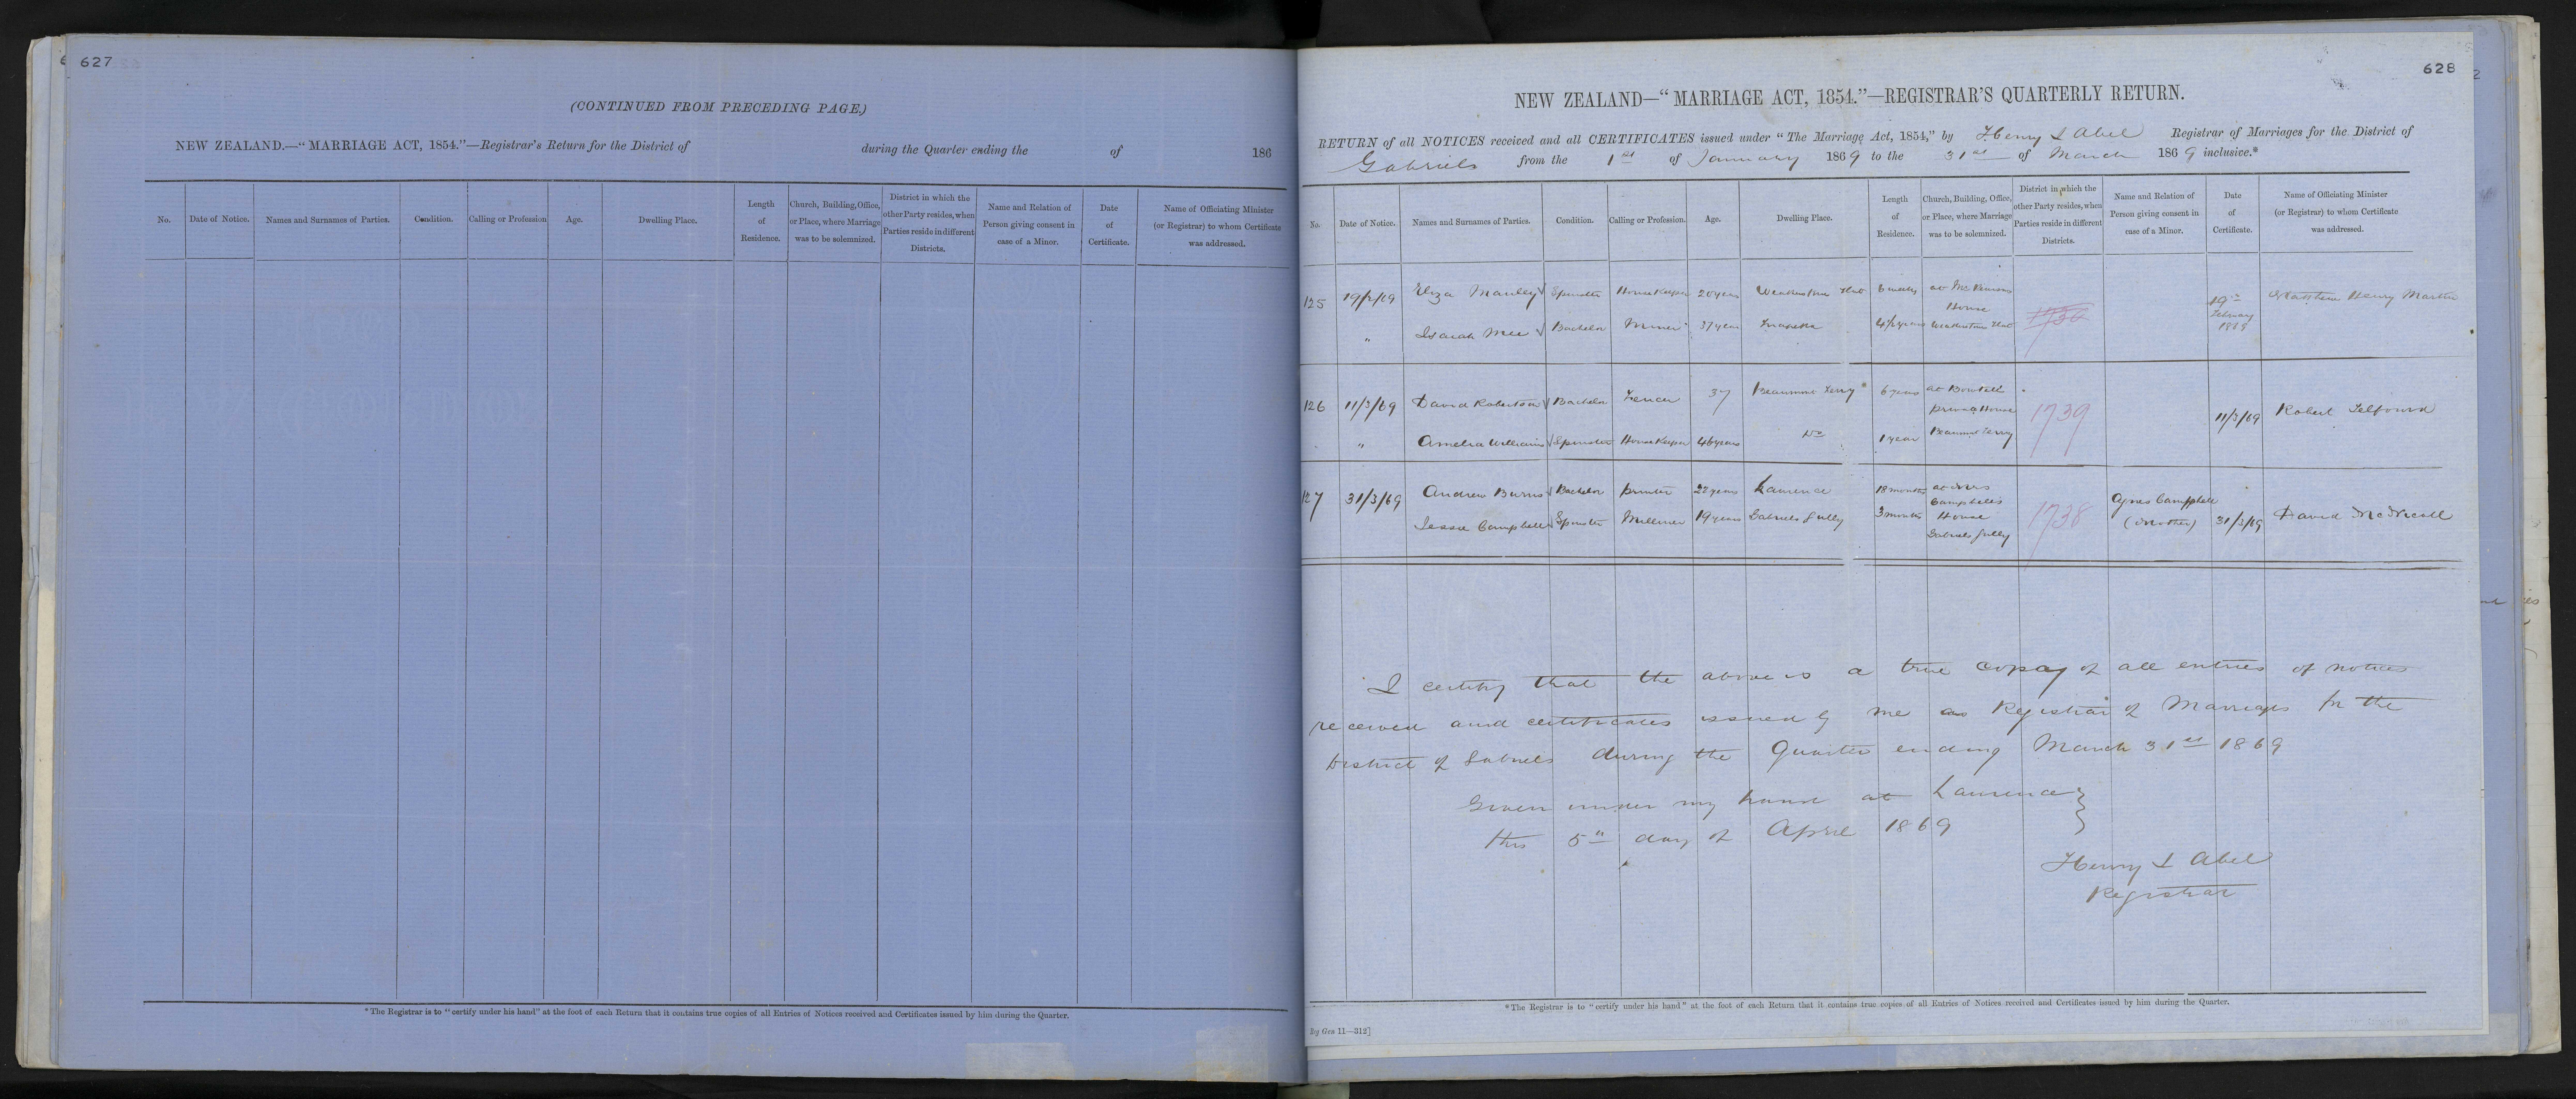 627
(CONTINUED FROM PRECEDING PAGE.)
NEW ZEALAND.—"MARRIAGE ACT, 1854."—Registrar's Return for the District of during the Quarter ending the of 186
No. Date of Notice. Names and Surnames of Parties. Condition. Calling or Profession Age. Dwelling Place. Length of Residence. Church, Building, Office, or Place, where Marriage was to be solemnized. District in which the other Party resides, when Parties reside in different Districts. Name and Relation of Person giving consent in case of a Minor. Date of Certificate. Name of Officiating Minister (or Registrar) to whom Certificate was addressed.
*The Registrar is to "certify under his hand" at the foot of each Return that it contains true copies of all Entries of Notices received and Certificates issued by him during the Quarter.
628
NEW ZEALAND—"MARRIAGE ACT, 1854."—REGISTRAR'S QUARTERLY RETURN.
RETURN of all NOTICES received and all CERTIFICATES issued under "The Marriage Act, 1854," by Henry L Abel Registrar of Marriages for the District of
Gabriels from the 1st of January 1869 to the 31st of March 1869 inclusive.*
No. Date of Notice. Names and Surnames of Parties. Condition. Calling or Profession. Age. Dwelling Place. Length of Residence. Church, Building, Office, or Place, where Marriage was to be solemnized. District in which the other Party resides, when Parties reside in different Districts. Name and Relation of Person giving consent in case of a Minor. Date of Certificate. Name of Officiating Minister (or Registrar) to whom Certificate was addressed.
125 19/2/69 Eliza Manley Spinster House Keeper 20 years Weatherstone Flat at Mr House 19th February 1869 Matthew Henry Martin
" Isaiah Mee Bachelor 37 years Tuapeka 4½ years Weatherstone Flat
126 11/3/69 David Robertson Bachelor Fencer 37 Beaumont Ferry 6 years at private House 1739 11/3/69 Robert Telfourd
" Amelia Williams Spinster House Keeper 46 years Do 1 year Beaumont Ferry
127 31/3/69 Andrew Burns Bachelor printer 22 years Lawrence 18 months at Mrs Campbells House Gabriels Gully 1738 Agnes Campbell (Mother) 31/3/69 David McNicoll
Jessie Campbell Spinster Milliner 19 years Gabriels Gully 3 months
I certify that the above is a true copy of all entries of notices
received and certificates issued by me as Registrar of Marriages for the
District of Gabriels during the Quarter ending March 31st 1869
Given under my hand at Lawrence
this 5th day of April 1869
Henry L Abel
Registrar
*The Registrar is to "certify under his hand" at the foot of each Return that it contains true copies of all Entries of Notices received and Certificates issued by him during the Quarter.
Gro 11—312]